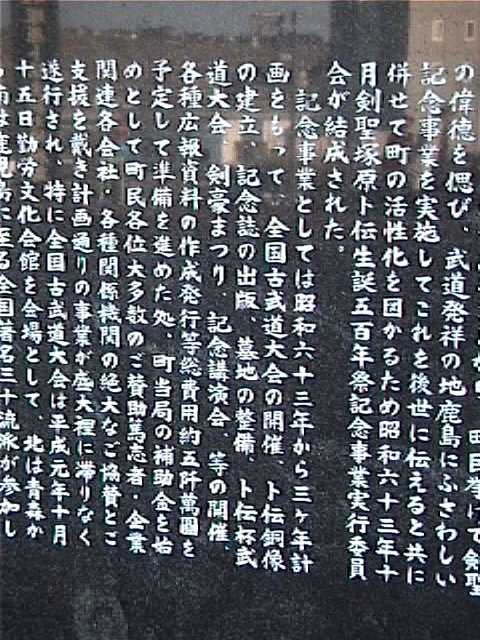 町民挙げて剣聖
の偉徳を偲び、武道発祥の地鹿島にふさわしい
記念事業を実施してこれを後世に伝えると共に
併せて町の活性化を図るため昭和六十三年十
月剣聖塚原卜伝生誕五百年祭記念事業実行委員
会が結成された。
記念事業としては昭和六十三年から三ヶ年計
画をもって 全国古武道大会の開催、卜伝銅像
の建立、記念誌の出版、墓地の整備、卜伝杯武
道大会 剣豪まつり、記念講演会、等の開催、
各種広報資料の作成発行等総費用約五阡萬圓を
予定して準備を進めた処、町当局の補助金を始
めとして町民各位大多数のご賛助篤志者・企業
関連各会社・各種関係機関の絶大なご協賛とご
支援を戴き計画通りの事業が盛大裡に滞りなく
遂行され、特に全国古武道大会は平成元年十月
十五日勤労文化会館を会場として、北は青森か
ら南は鹿児島に至る全国著名三十流派が参加し